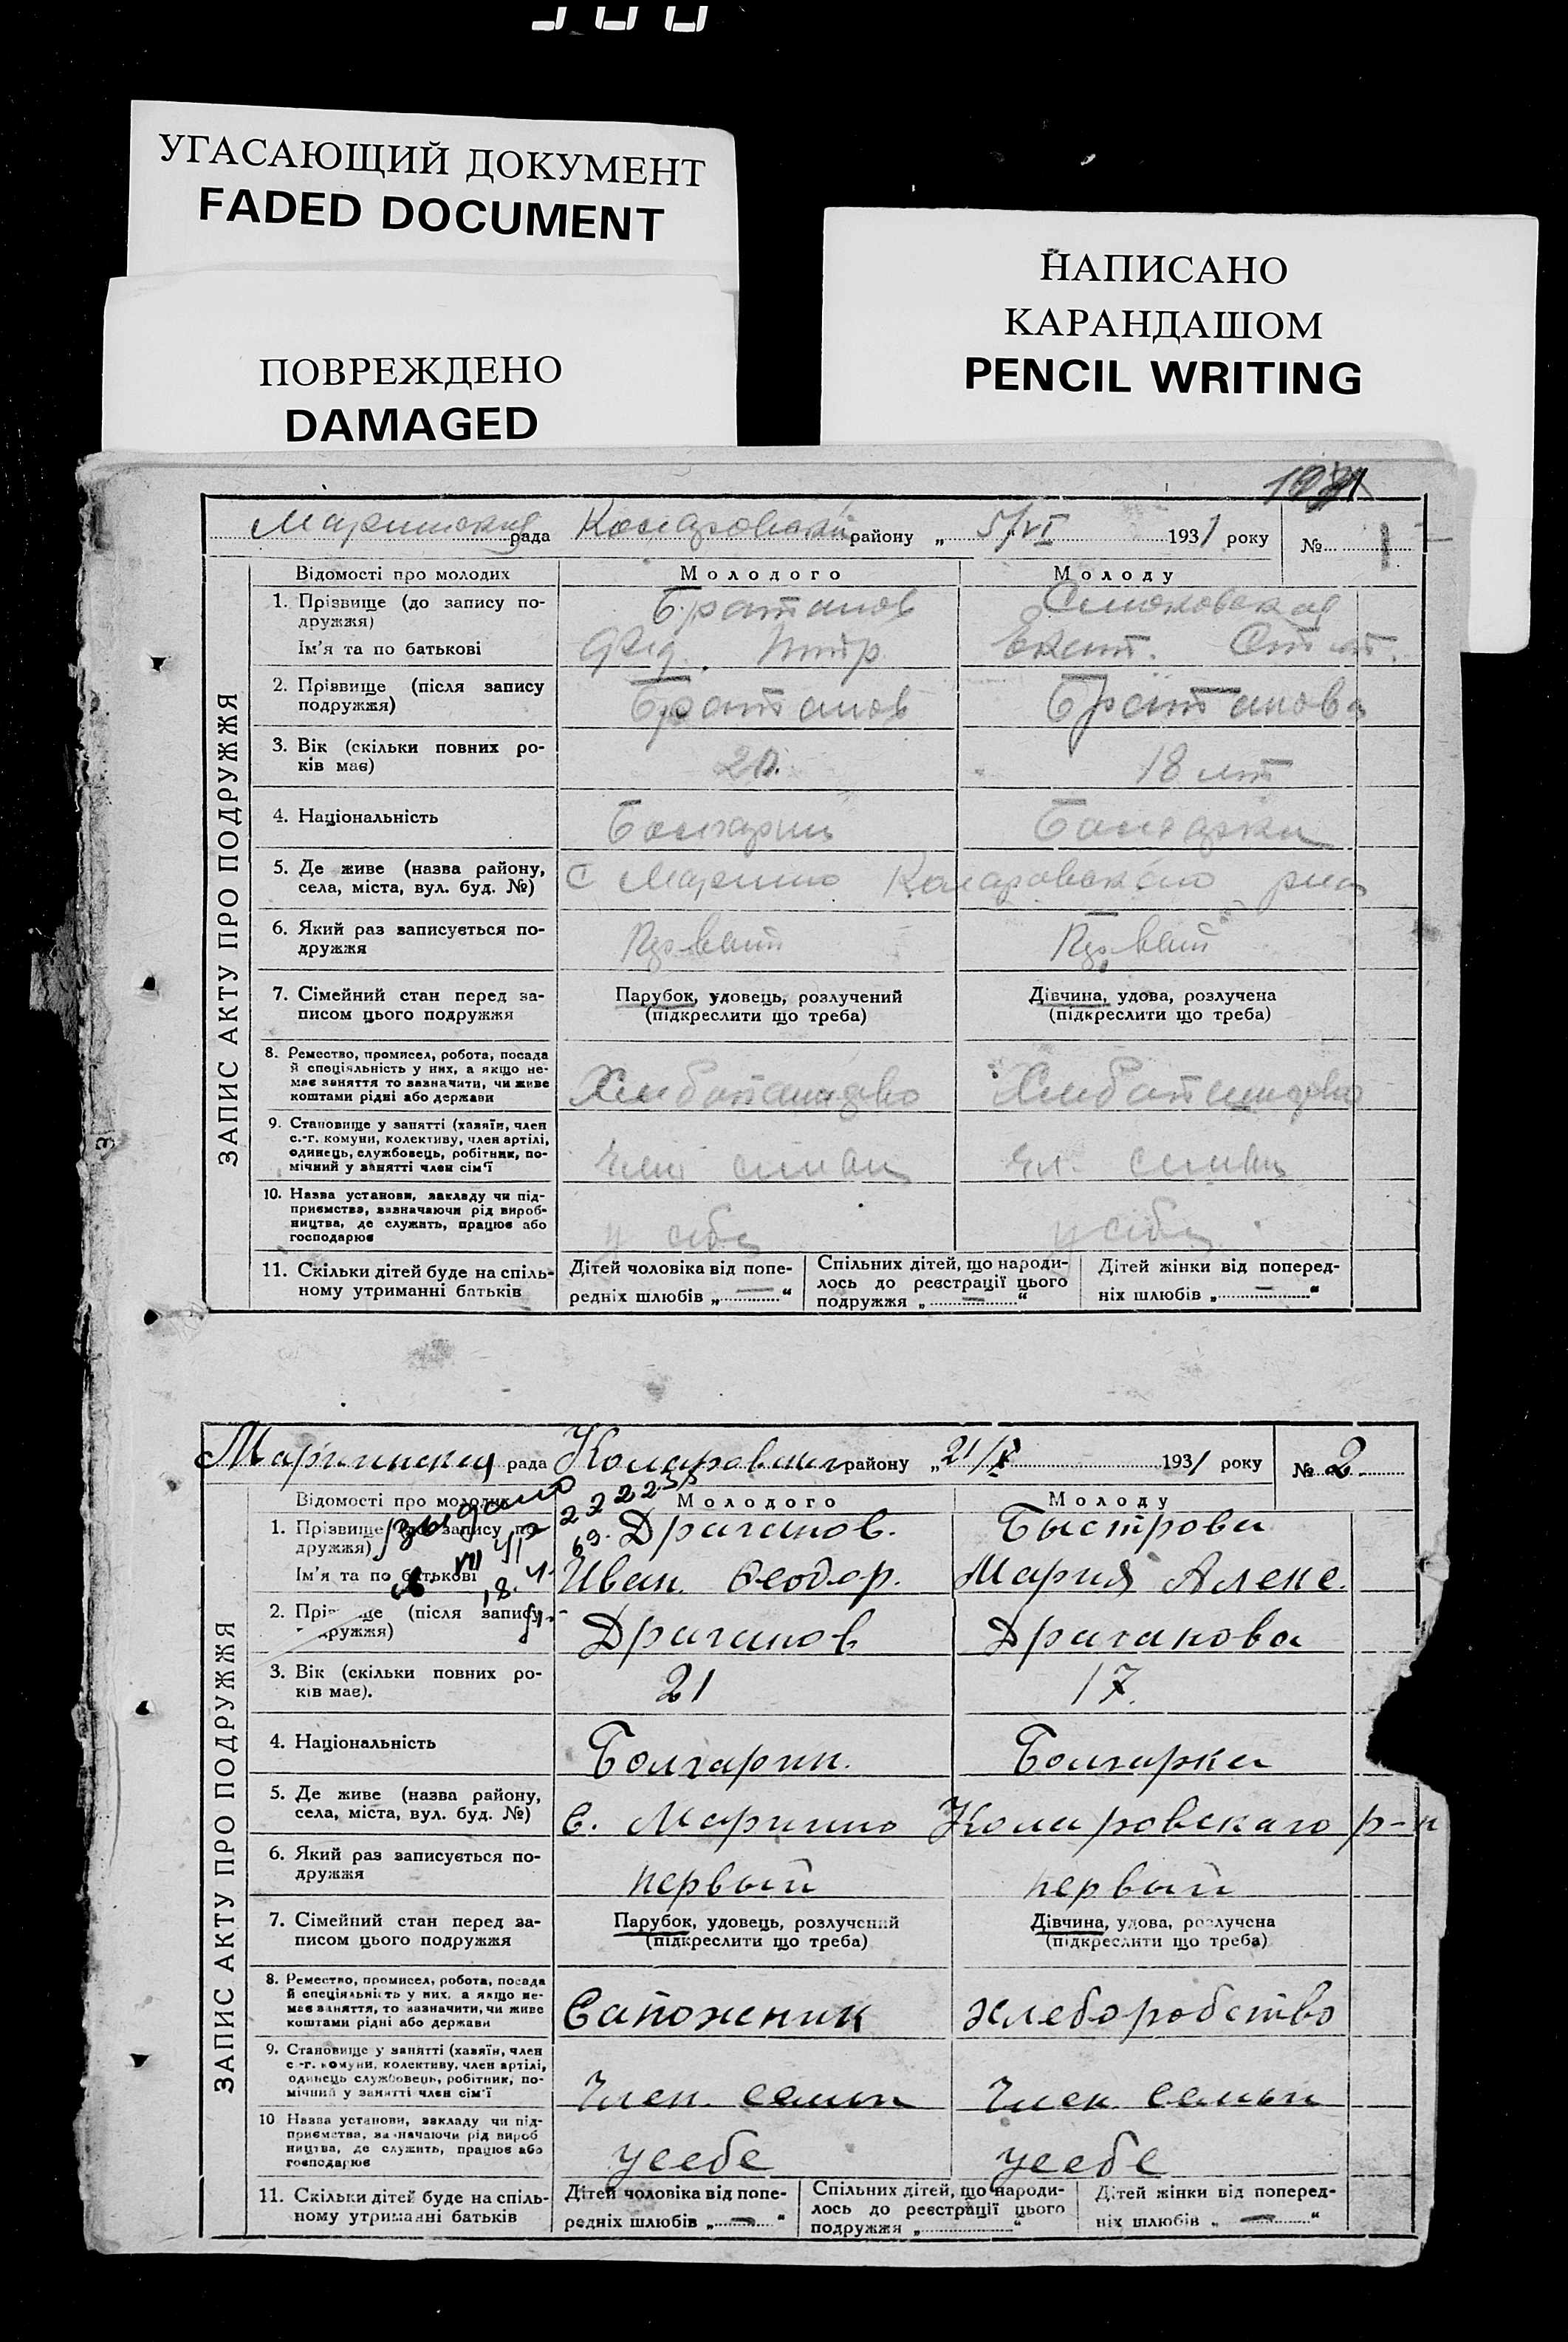 УГАСАЮЩИЙ ДОКУМЕНТ
FADED DOCUMENT
ПОВРЕЖДЕНО
DAMAGED
НАПИСАНО
КАРАНДАШОМ
PENCIL WRITING
рада району „ 5/VI 1931 року № 1
ЗАПИС АКТУ ПРО ПОДРУЖЖЯ
Відомості про молодих Молодого Молоду
1. Прізвище (до запису по-
дружжя) Братанов
Ім'я та по батькові Екат.
2. Прізвище (після запису
подружжя) Братанов Братанова
3. Вік (скільки повних ро-
ків має) 20. 18 лет
4. Національність Болгарин Болгарка
5. Де живе (назва району,
села, міста, вул. буд. №) С Марино Коларовского
6. Який раз записується по-
дружжя
7. Сімейний стан перед за-
писом цього подружжя
Парубок, удовець, розлучений
(підкреслити що треба)
Дівчина, удова, розлучена
(підкреслити що треба)
8. Ремество, промисел, робота, посада
й спеціяльність у них, а якщо не-
має заняття то зазначити, чи живе
коштами рідні або держави
9. Становище у занятті (хазяїн, член
с.-г. комуни, колективу, член артілі,
одинець, службовець, робітник, по-
мічний у занятті член сім'ї
10. Назва установи, закладу чи під-
приємства, зазначаючи рід вироб-
ництва, де служить, працює або
господарює у себе у себе
11. Скільки дітей буде на спіль-
ному утриманні батьків
Дітей чоловіка від попе-
редніх шлюбів „ — “
Спільних дітей, що народи-
лось до реєстрації цього
подружжя „ — “
Дітей жінки від поперед-
ніх шлюбів „ — “
Мариинская рада району „ 1931 року № 2
ЗАПИС АКТУ ПРО ПОДРУЖЖЯ
Відомості про молодих Молодого Молоду
1. Прізвище запису по-
дружжя) Драганов. Быстрова
Ім'я та по батькові Иван. Феодор. Мария Алекс.
2. (після запису
дружжя) Драганов Драганова
3. Вік (скільки повних ро-
ків має). 21 17.
4. Національність Болгарин. Болгарка
5. Де живе (назва району,
села, міста, вул. буд. №) С. Марино Коларовскаго р-н
6. Який раз записується по-
дружжя первый первый
7. Сімейний стан перед за-
писом цього подружжя
Парубок, удовець, розлучений
(підкреслити що треба)
Дівчина, удова, розлучена
(підкреслити що треба)
8. Ремество, промисел, робота, посада
й спеціяльність у них, а якщо не-
має заняття, то зазначити, чи живе
коштами рідні або держави
Сапожник хлеборобство
9. Становище у занятті (хазяїн, член
с.-г. комуни, колективу, член артілі,
одинець службовець, робітник, по-
мічний у занятті член сім'ї
Член. семьи Член. семьи
10 Назва установи, закладу чи під-
приємства, зазначаючи рід вироб
ництва, де служить, працює або
господарює
усебе усебе
11. Скільки дітей буде на спіль-
ному утриманні батьків
Дітей чоловіка від попе-
редніх шлюбів „ — “
Спільних дітей, що народи-
лось до реєстрації цього
подружжя „ “
Дітей жінки від поперед-
ніх шлюбів „ — “